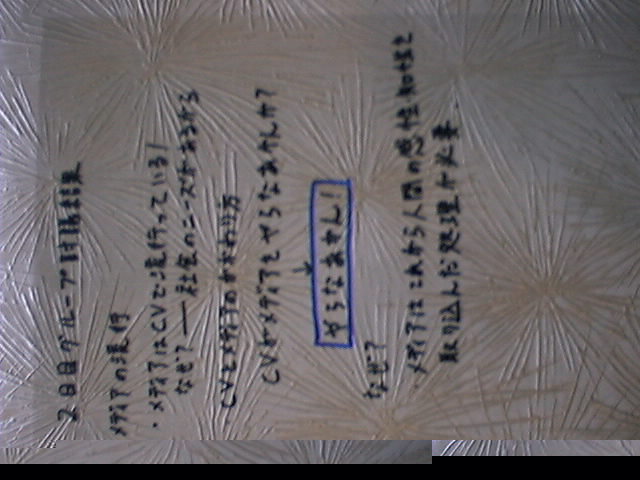 2日目グループ討論結果
メディアの流行
・メディアはCVで流行っている!
なぜ? ― 社会のニーズがあるから
CVとメディアのかかわり方
CVがメディアをやらなあかんか?
やらなあかん!
なぜ?
・メディアはこれから人間の感性知性を
取り込んだ処理が必要